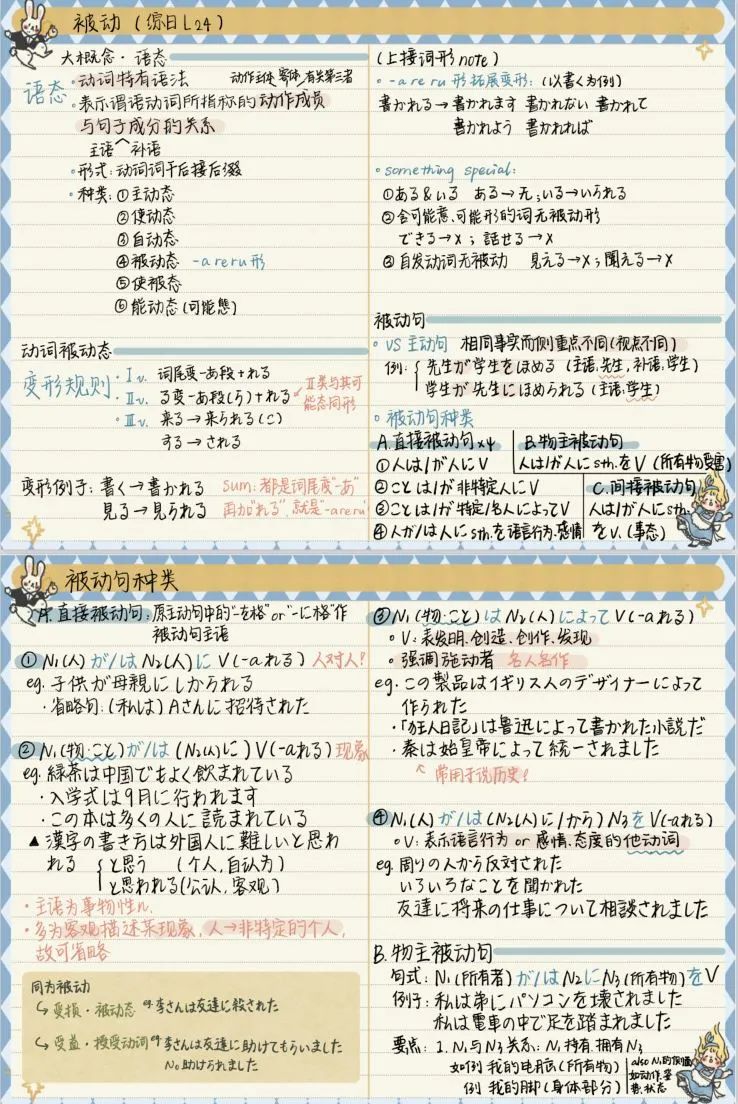 被动 (综日L24)
大概念·语态
语态
·动词特有语法 动作主体,客体,有关第三者
·表示谓语动词所指称的动作成员
与句子成分的关系
主语 补语
·形式:动词词干后接后缀
·种类:①主动态
②使动态
③自动态
④被动态 -areru形
⑤使被态
⑥能动态(可能態)
动词被动态
变形规则
·Ⅰv. 词尾变-あ段+れる
·Ⅱv. る变-あ段(ら)+れる
Ⅱ类与其可
能态同形
·Ⅲv. 来る→来られる(こ)
する→される
变形例子:書く→書かれる
見る→見られる
sum:都是词尾变"-あ"
再加"れる",就是"-areru"
(上接词形note)
·-areru形拓展变形:(以書く为例)
書かれる→書かれます 書かれない 書かれて
書かれよう 書かれれば
·something special:
①ある&いる ある→无;いる→いられる
②含可能意、可能形的词无被动形
できる→×;話せる→×
③自发动词无被动 見える→×;聞える→×
被动句
·VS 主动句 相同事实而侧重点不同(视点不同)
例:先生が学生をほめる (主语:先生,补语:学生)
学生が先生にほめられる(主语:学生)
·被动句种类
A.直接被动句×4
①人は/が人にV
②ことは/が非特定人にV
③ことは/が特定/名人によってV
④人が/は人にsth.を语言行为·感情
B.物主被动句
人は/が人にsth.をV(所有物受害)
C.间接被动句
人は/が人にsth.
をV.(事态)
被动句种类
A.直接被动句:原主动句中的"-を格"or"-に格"作
被动句主语
①N₁(人)が/はN₂(人)に V(-aれる) 人对人?
eg.子供が母親にしかられる
·省略句:(私は)Aさんに招待された
②N₁(物·こと)が/は(N₂(人)に)V(-aれる)现象
eg.緑茶は中国でもよく飲まれている
·入学式は9月に行われます
·この本は多くの人に読まれている
▲漢字の書き方は外国人に難しいと思わ
れる と思う (个人,自认为)
と思われる(公认,客观)
·主语为事物性n.
·多为客观描述某现象,人→非特定的个人,
故可省略
同为被动
↳受损·被动态 eg.李さんは友達に殺された
↳受益·授受动词 eg.李さんは友達に助けてもらいました
No.助けられました
③N₁(物·こと)はN₂(人)によってV(-aれる)
·V:表发明、创造、创作、发现
·强调施动者 名人名作
eg.この製品はイギリス人のデザイナーによって
作らた
·「狂人日記」は魯迅によって書かれた小説だ
·秦は始皇帝によって統一されました
↖常用于说历史!
④N₁(人)が/は(N₂(人)に/から)N₃をV(-aれる)
·V:表示语言行为or感情、态度的他动词
eg.周りの人から反対された
いろいろなことを聞かれた
友達に将来の仕事について相談されました
B.物主被动句
句式:N₁(所有者)が/はN₂にN₃(所有物)をV
例子:私は弟にパソコンを壊されました
私は電車の中で足を踏まれました
要点:1.N₁与N₃关系:N₁持有、拥有N₃
如例 我的电脑(所有物)
例 我的脚(身体部分)
also N₁的侧面
如动作、姿
势、状态